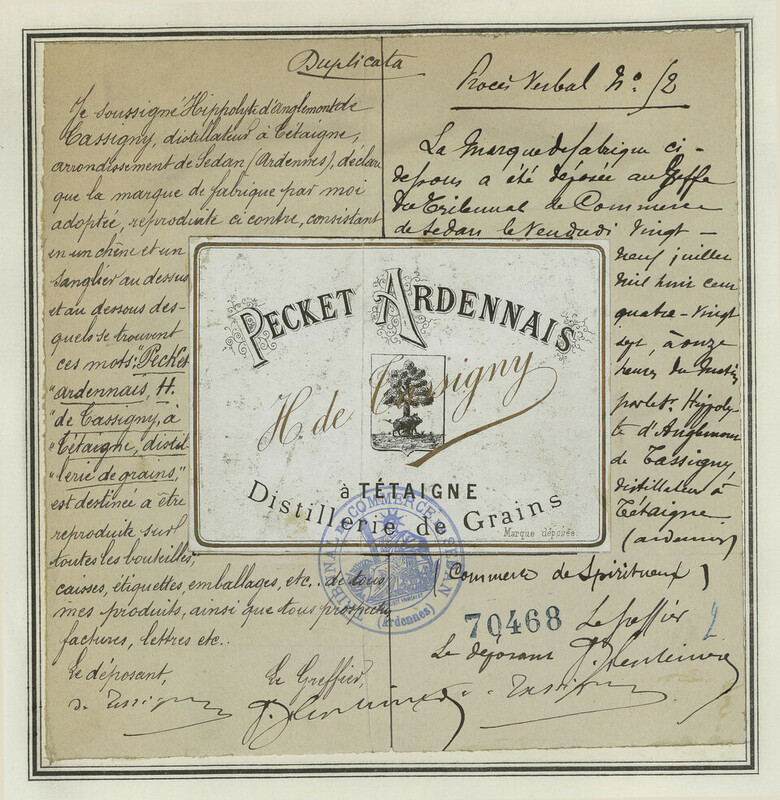 Duplicata
Je soussigné Hippolyte d'Anglemont de
Tassigny, distillateur à Tétaigne,
arrondissement de Sedan (Ardennes), déclare
que la marque de fabrique par moi
adoptée, reproduite ci contre, consistant
en un chêne et un
sanglier au dessus
et au dessous des-
quels se trouvent
ces mots: "Pecket
"ardennais, H.
"de Tassigny, à
"Tétaigne, distil
"lerie de grains,"
est destinée à être
reproduite sur
toutes les bouteilles,
caisses, étiquettes, emballages, etc. de tous
mes produits, ainsi que tous prospectus
factures, lettres etc..
Le déposant,
de Tassigny
Le Greffier,
Procès Verbal No. 52
La Marque de fabrique ci-
dessus a été déposée au Greffe
du Tribunal de Commerce
de Sedan le Vendredi Vingt-
neuf juillet
mil huit cent
quatre-vingt
sept, à onze
heures du matin
par le Sr. Hippoly-
te d'Anglemont
de Tassigny,
distillateur à
Tétaigne
(ardennes)
(Commerce de Spiritueux)
70468
Le Greffier
2
Le déposant
de Tassigny
PECKET ARDENNAIS
H. de Tassigny
à TÉTAIGNE
Distillerie de Grains
Marque déposée.
TRIBUNAL DE COMMERCE SEDAN
(Ardennes)